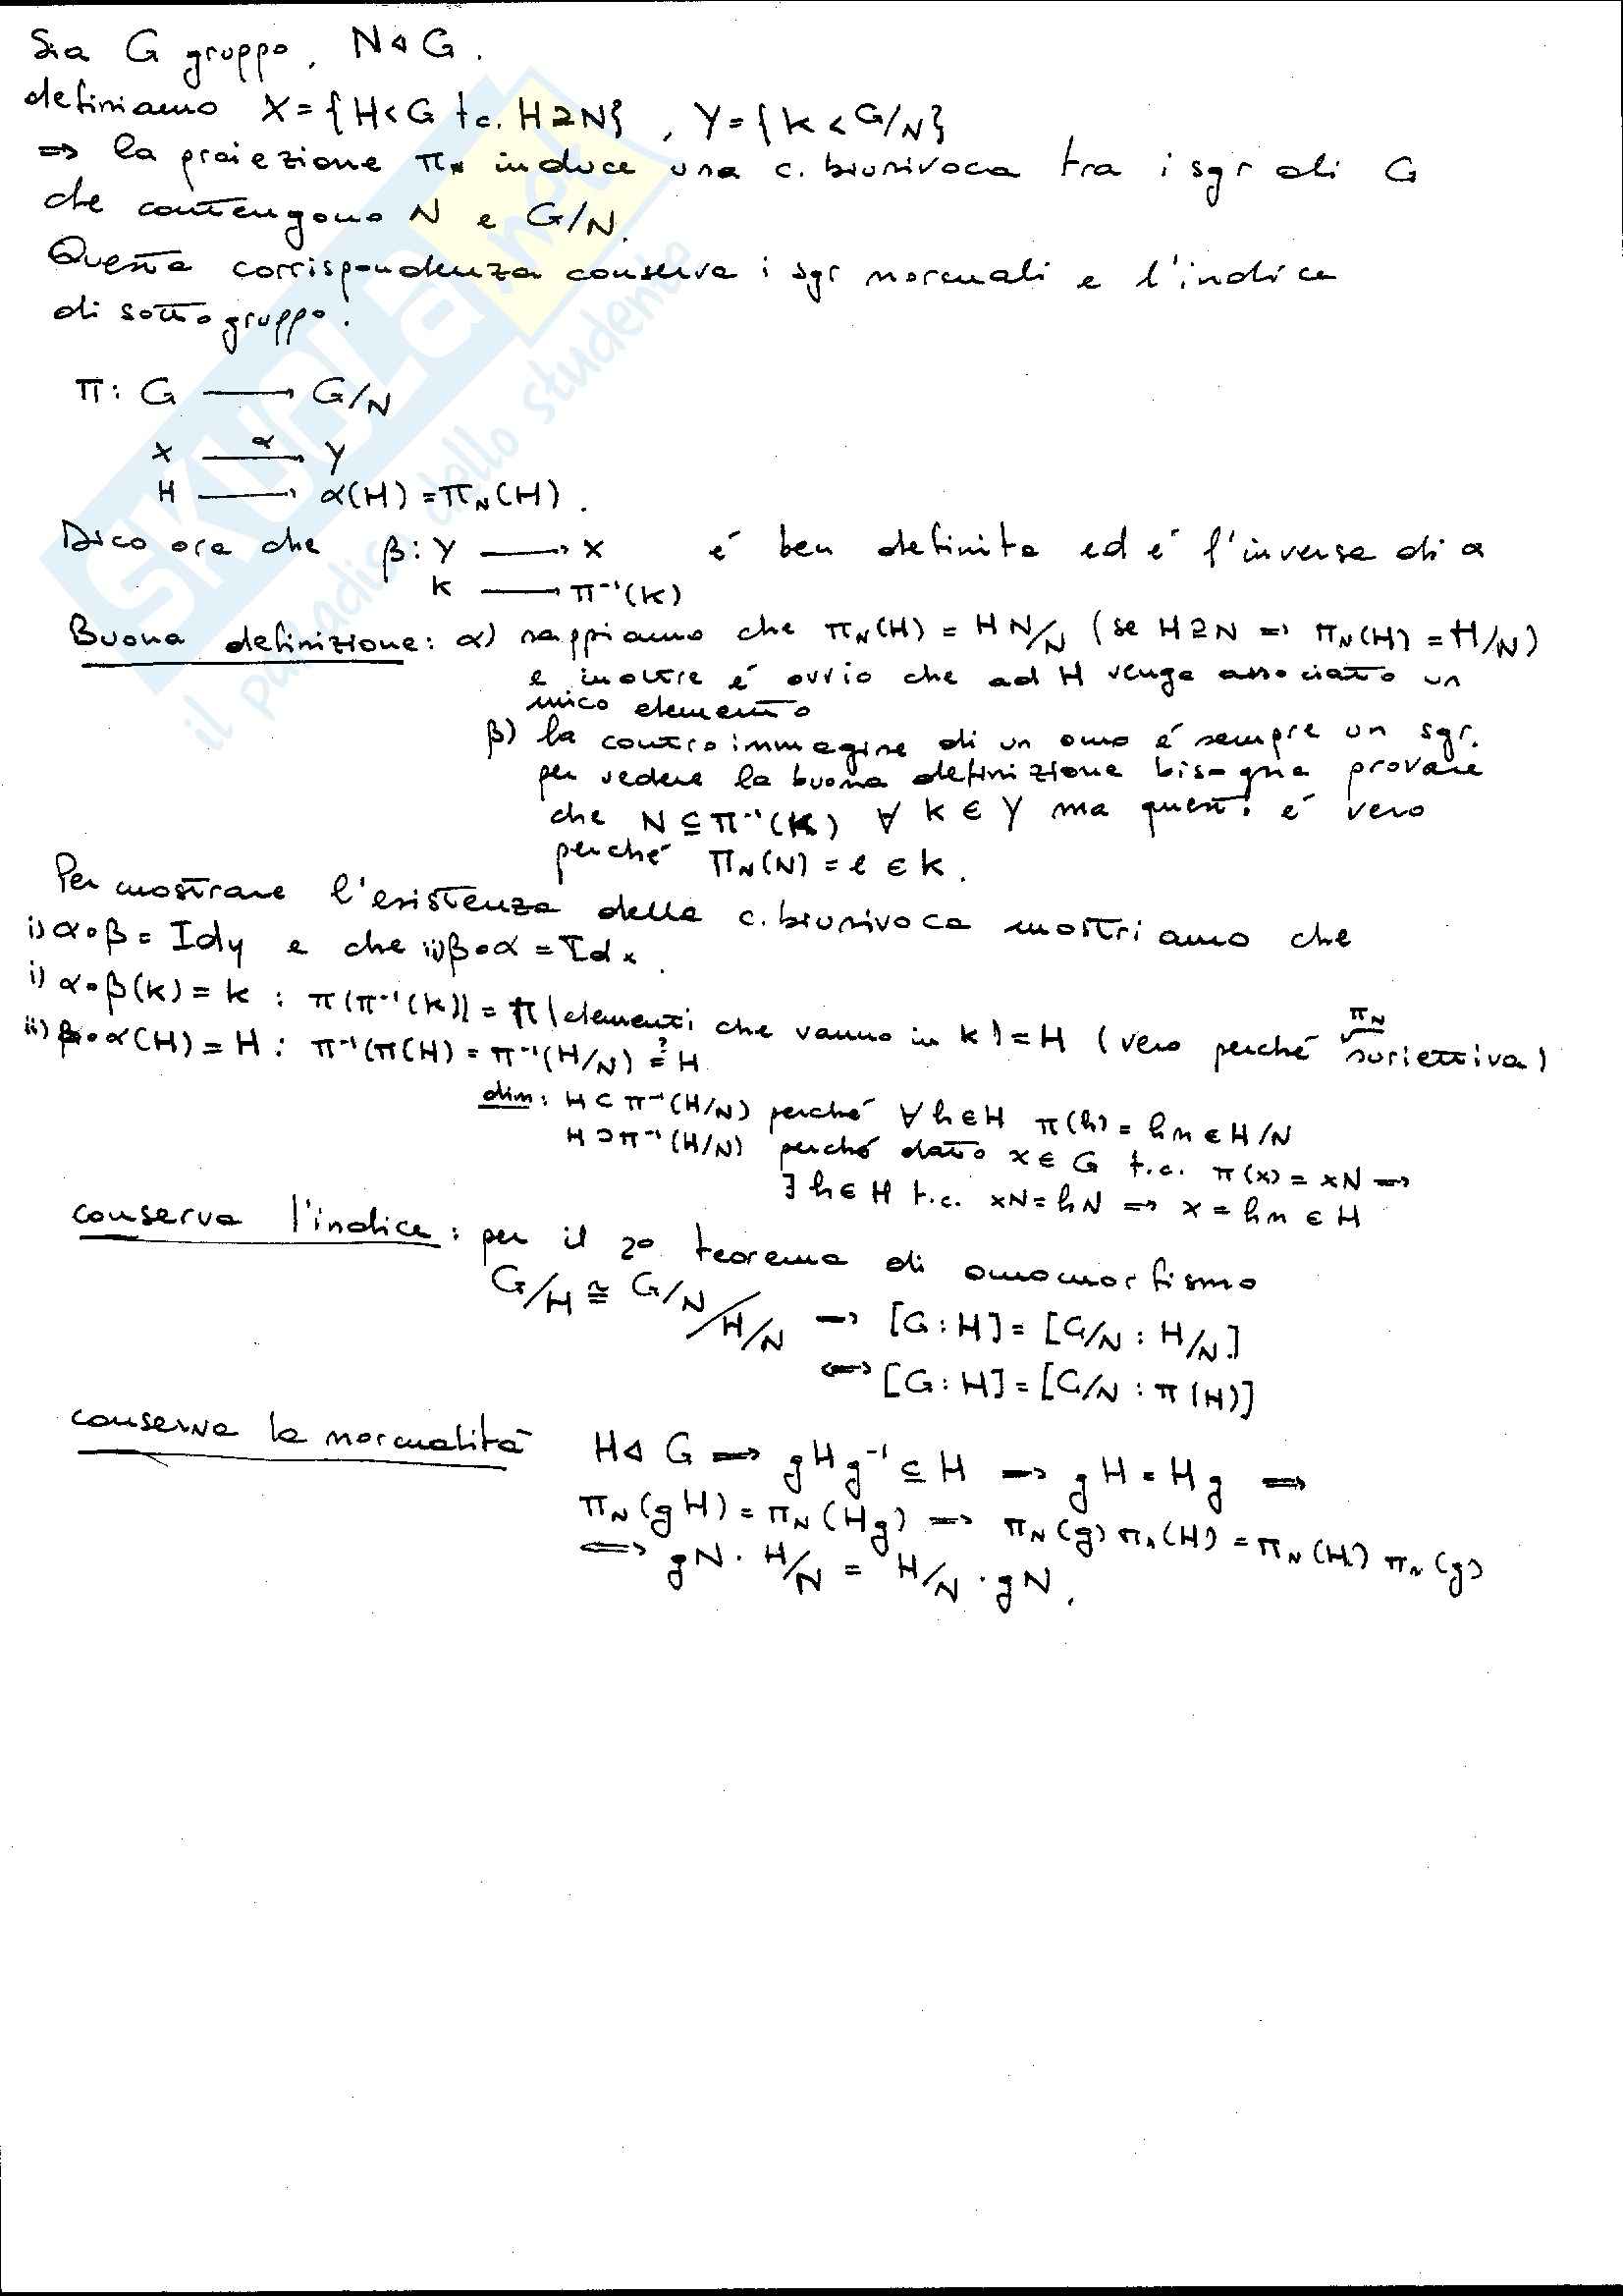 Sia G gruppo, N◁G.
definiamo X={H<G tc. H⊇N}, Y={K<G/N}
⇒ la proiezione π_N induce una c. biunivoca tra i sgr di G
che contengono N e G/N.
Questa corrispondenza conserva i sgr normali e l'indice
di sottogruppo.
π: G ⟶ G/N
X ⟶^α Y
H ⟶ α(H)=π_N(H).
Dico ora che β: Y ⟶ X é ben definita ed é l'inversa di α
K ⟶ π⁻¹(K)
Buona definizione: α) sappiamo che π_N(H) = HN/N (se H⊇N ⇒ π_N(H) = H/N)
e inoltre é ovvio che ad H venga associato un
unico elemento
β) la controimmagine di un omo é sempre un sgr.
per vedere la buona definizione bisogna provare
che N⊆π⁻¹(K) ∀ K∈Y ma questo é vero
perché π_N(N) = e ∈ K.
Per mostrare l'esistenza della c. biunivoca mostriamo che
i) α∘β = Id_Y e che ii) β∘α = Id_X.
i) α∘β(K) = K : π(π⁻¹(K)) = π(elementi che vanno in K) = H (vero perché π_N suriettiva)
ii) β∘α(H) = H : π⁻¹(π(H) = π⁻¹(H/N) ≟ H
dim: H⊂π⁻¹(H/N) perché ∀h∈H π(h) = hn ∈ H/N
H⊃π⁻¹(H/N) perché dato x∈G t.c. π(x) = xN ⇒
∃h∈H t.c. xN=hN ⇒ x = hn ∈ H
conserva l'indice: per il 2° teorema di omomorfismo
G/H ≅ G/N/H/N ⇒ [G:H] = [G/N : H/N]
⟺ [G:H] = [G/N : π(H)]
conserva la normalità H◁G ⇒ gHg⁻¹⊆H ⇒ gH=Hg ⇒
π_N(gH) = π_N(Hg) ⇒ π_N(g) π_N(H) = π_N(H) π_N(g)
⟺ gN · H/N = H/N · gN.
SKUOLA.net
il paradiso dello studente